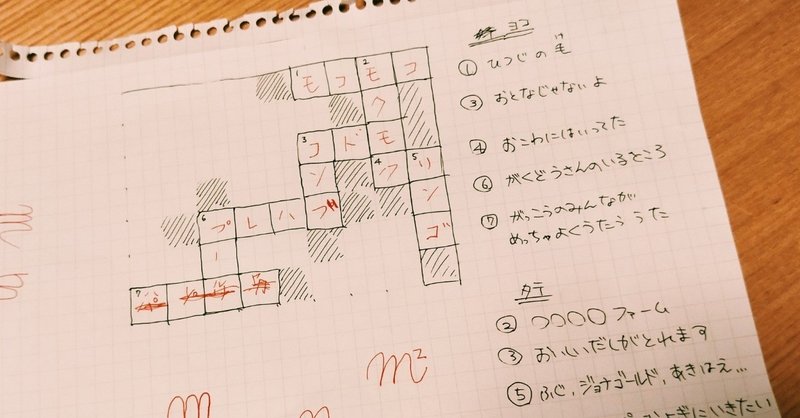 1 モ コ 2 モ コ
ク
3 コ ド モ
ン 4 ク 5 リ
ン
6 プ レ ハ ブ ゴ
ー
7
m²
m
ヨコ
① ひつじの毛
③ おとなじゃないよ
④ おこわにはいってた
⑥ がくどうさんのいるところ
⑦ がっこうのみんなが
めっちゃよくうたう うた
タテ
② ○○○○ファーム
③ おいしいだしがとれます
⑤ ふじ、ジョナゴールド、あきばえ…
にいきたい